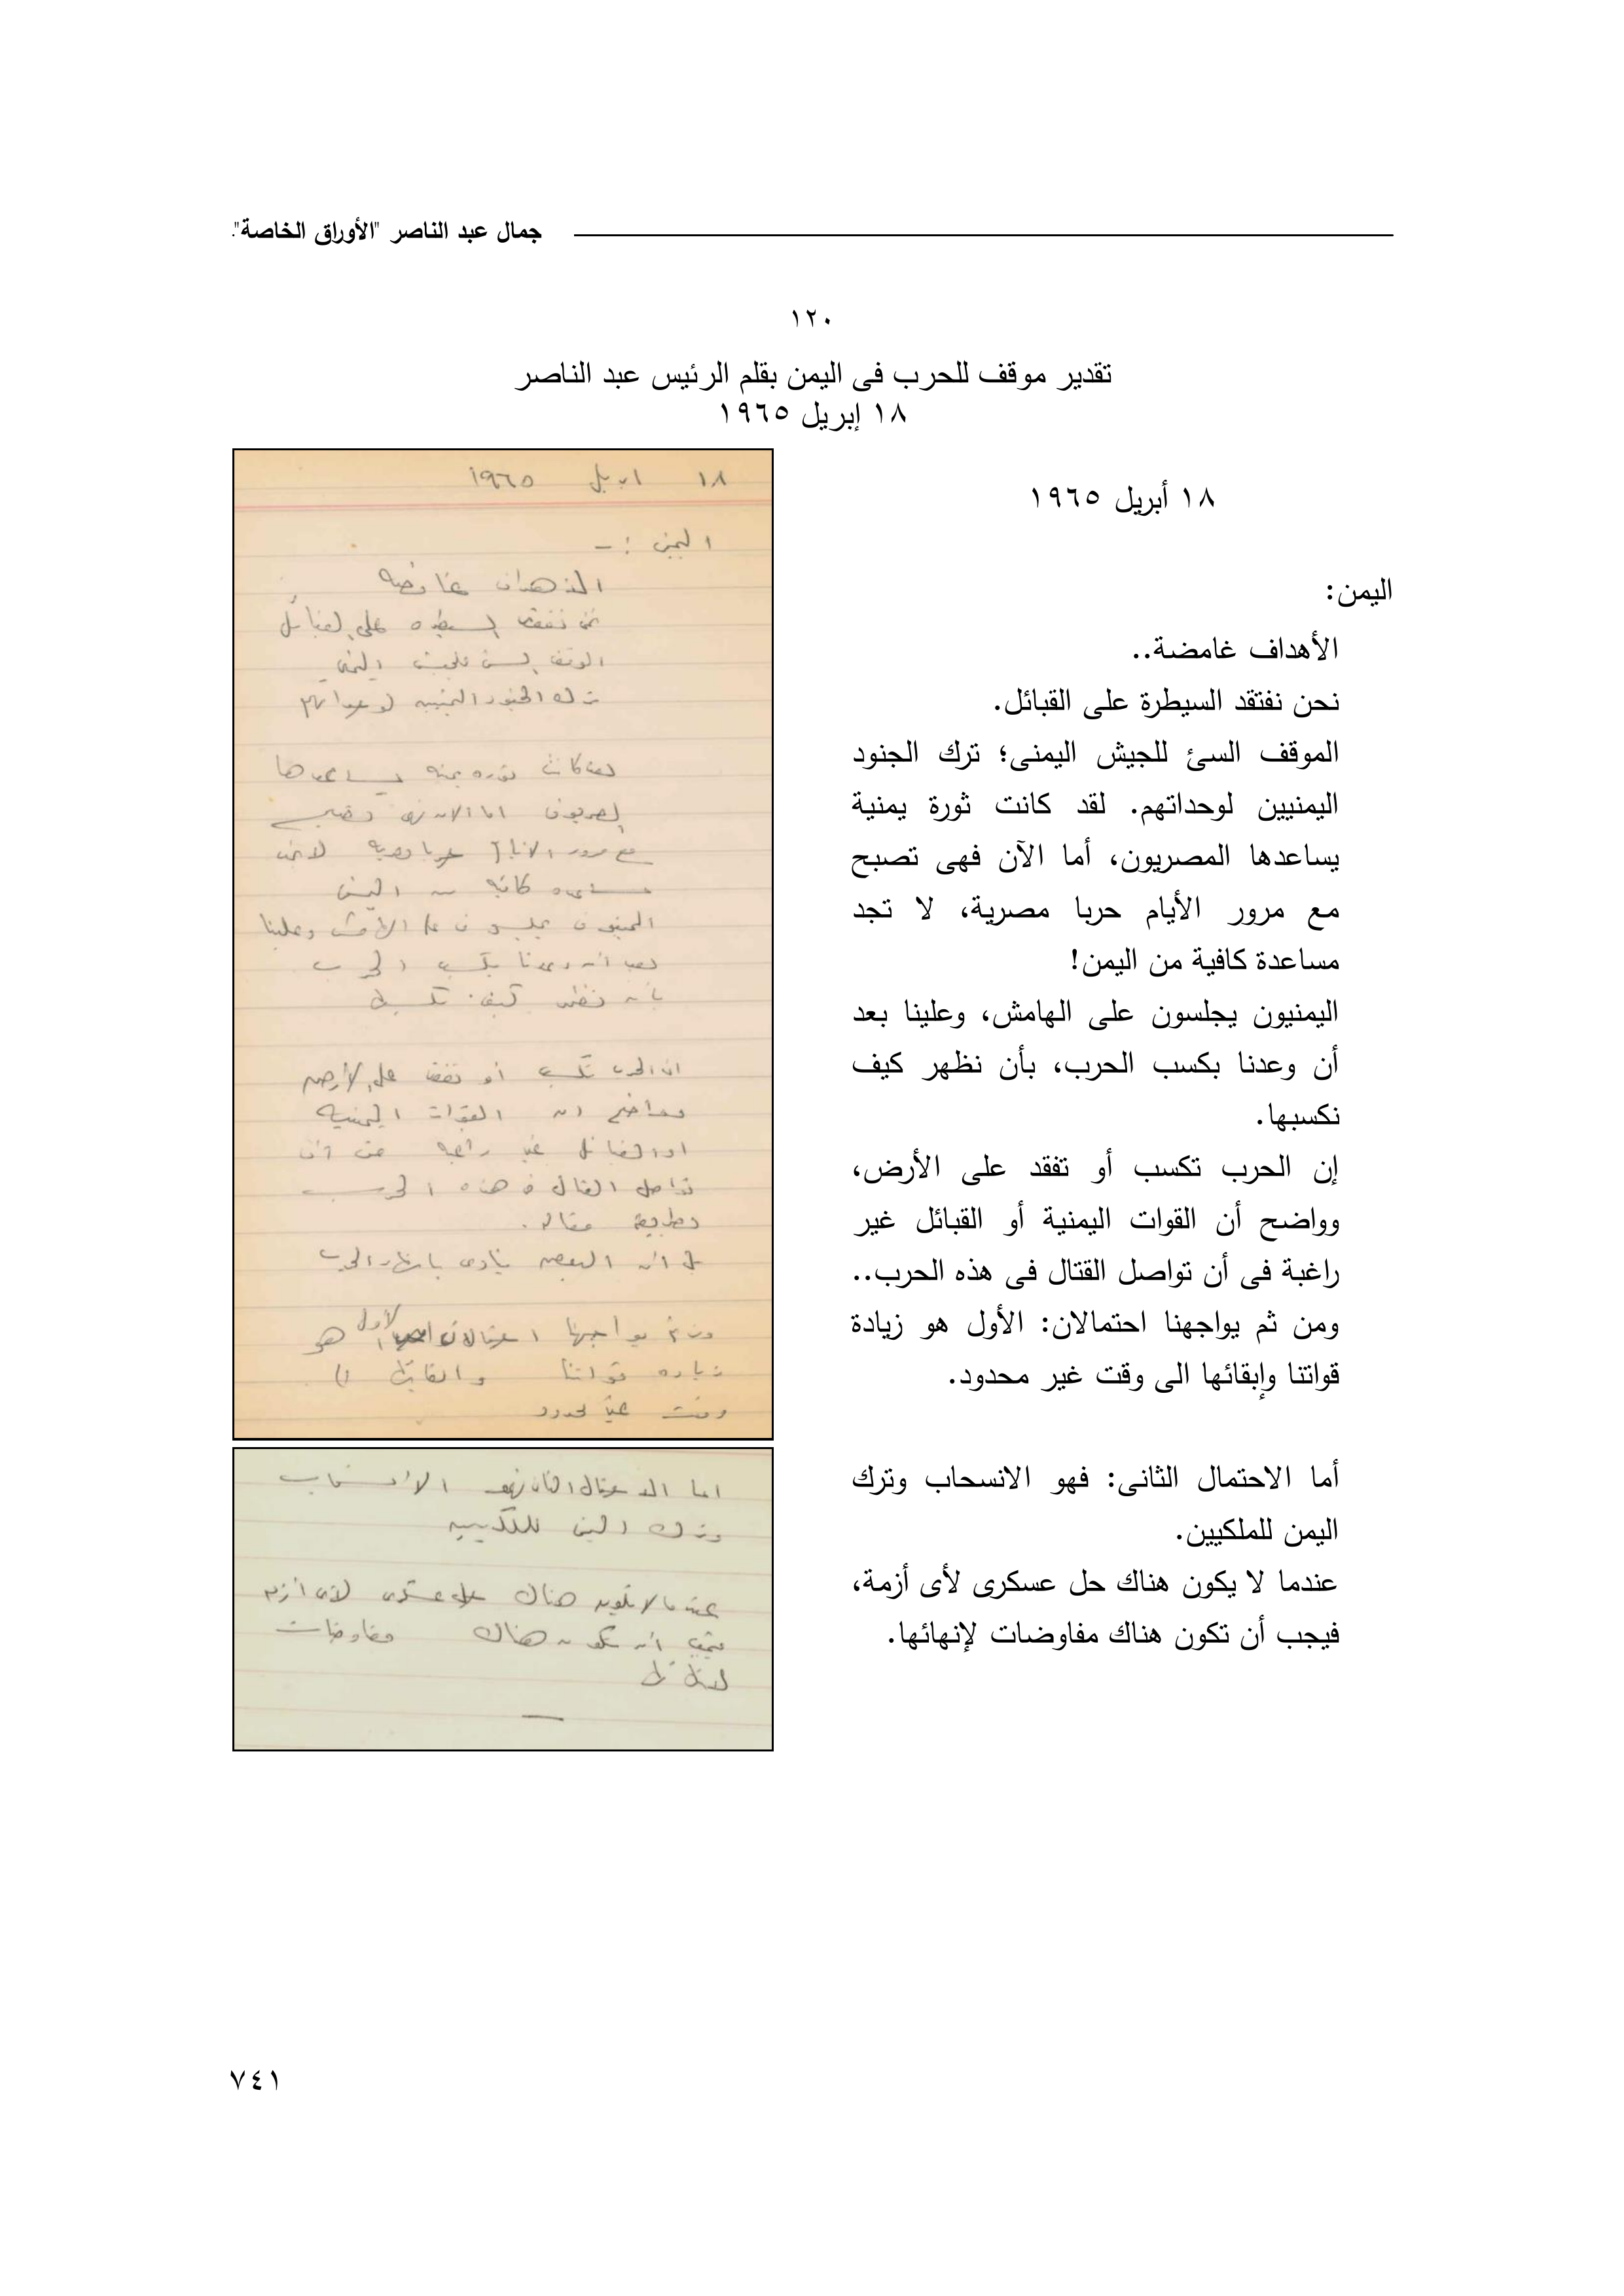 جمال عبد الناصر "الأوراق الخاصة".
١٢٠
تقدير موقف للحرب فى اليمن بقلم الرئيس عبد الناصر
١٨ إبريل ١٩٦٥
١٨ أبريل ١٩٦٥
اليمن:
الأهداف غامضة..
نحن نفتقد السيطرة على القبائل.
الموقف السئ للجيش اليمنى؛ ترك الجنود
اليمنيين لوحداتهم. لقد كانت ثورة يمنية
يساعدها المصريون، أما الآن فهى تصبح
مع مرور الأيام حربا مصرية، لا تجد
مساعدة كافية من اليمن!
اليمنيون يجلسون على الهامش، وعلينا بعد
أن وعدنا بكسب الحرب، بأن نظهر كيف
نكسبها.
إن الحرب تكسب أو تفقد على الأرض،
وواضح أن القوات اليمنية أو القبائل غير
راغبة فى أن تواصل القتال فى هذه الحرب..
ومن ثم يواجهنا احتمالان: الأول هو زيادة
قواتنا وإبقائها الى وقت غير محدود.
أما الاحتمال الثانى: فهو الانسحاب وترك
اليمن للملكيين.
عندما لا يكون هناك حل عسكرى لأى أزمة،
فيجب أن تكون هناك مفاوضات لإنهائها.
١٨ ابريل ١٩٦٥
اليمن :-
الاهداف غامضه
نحن نفتقد السيطره على القبائل
الموقف السئ للجيش اليمنى
ترك الجنود اليمنييه لوحداتهم
لقد كانت ثوره يمنيه يساعدها
المصريون اما الان فهى تصبح
مع مرور الايام حربا مصريه لا تجد
مساعده كافيه من اليمن
اليمنيون يجلسون على الهامش وعلينا
بعد ان وعدنا بكسب الحرب
بان نظهر كيف نكسبها
ان الحرب تكسب أو تفقد على الأرض
وواضح ان القوات اليمنيه
او القبائل غير راغبه فى أن
تواصل القتال فى هذه الحرب
بطريقه فعاله.
بل ان البعض ينادى بانهاء الحرب
ومن ثم يواجهنا احتمالان الأول هو
زياده قواتنا وابقائها الى
وقت غير محدود
اما الاحتمال الثانى فهو الانسحاب
وترك اليمن للملكيين
عندما لا يكون هناك حل عسكرى لأى أزمه
فيجب أن تكون هناك مفاوضات
لانهائها
٧٤١